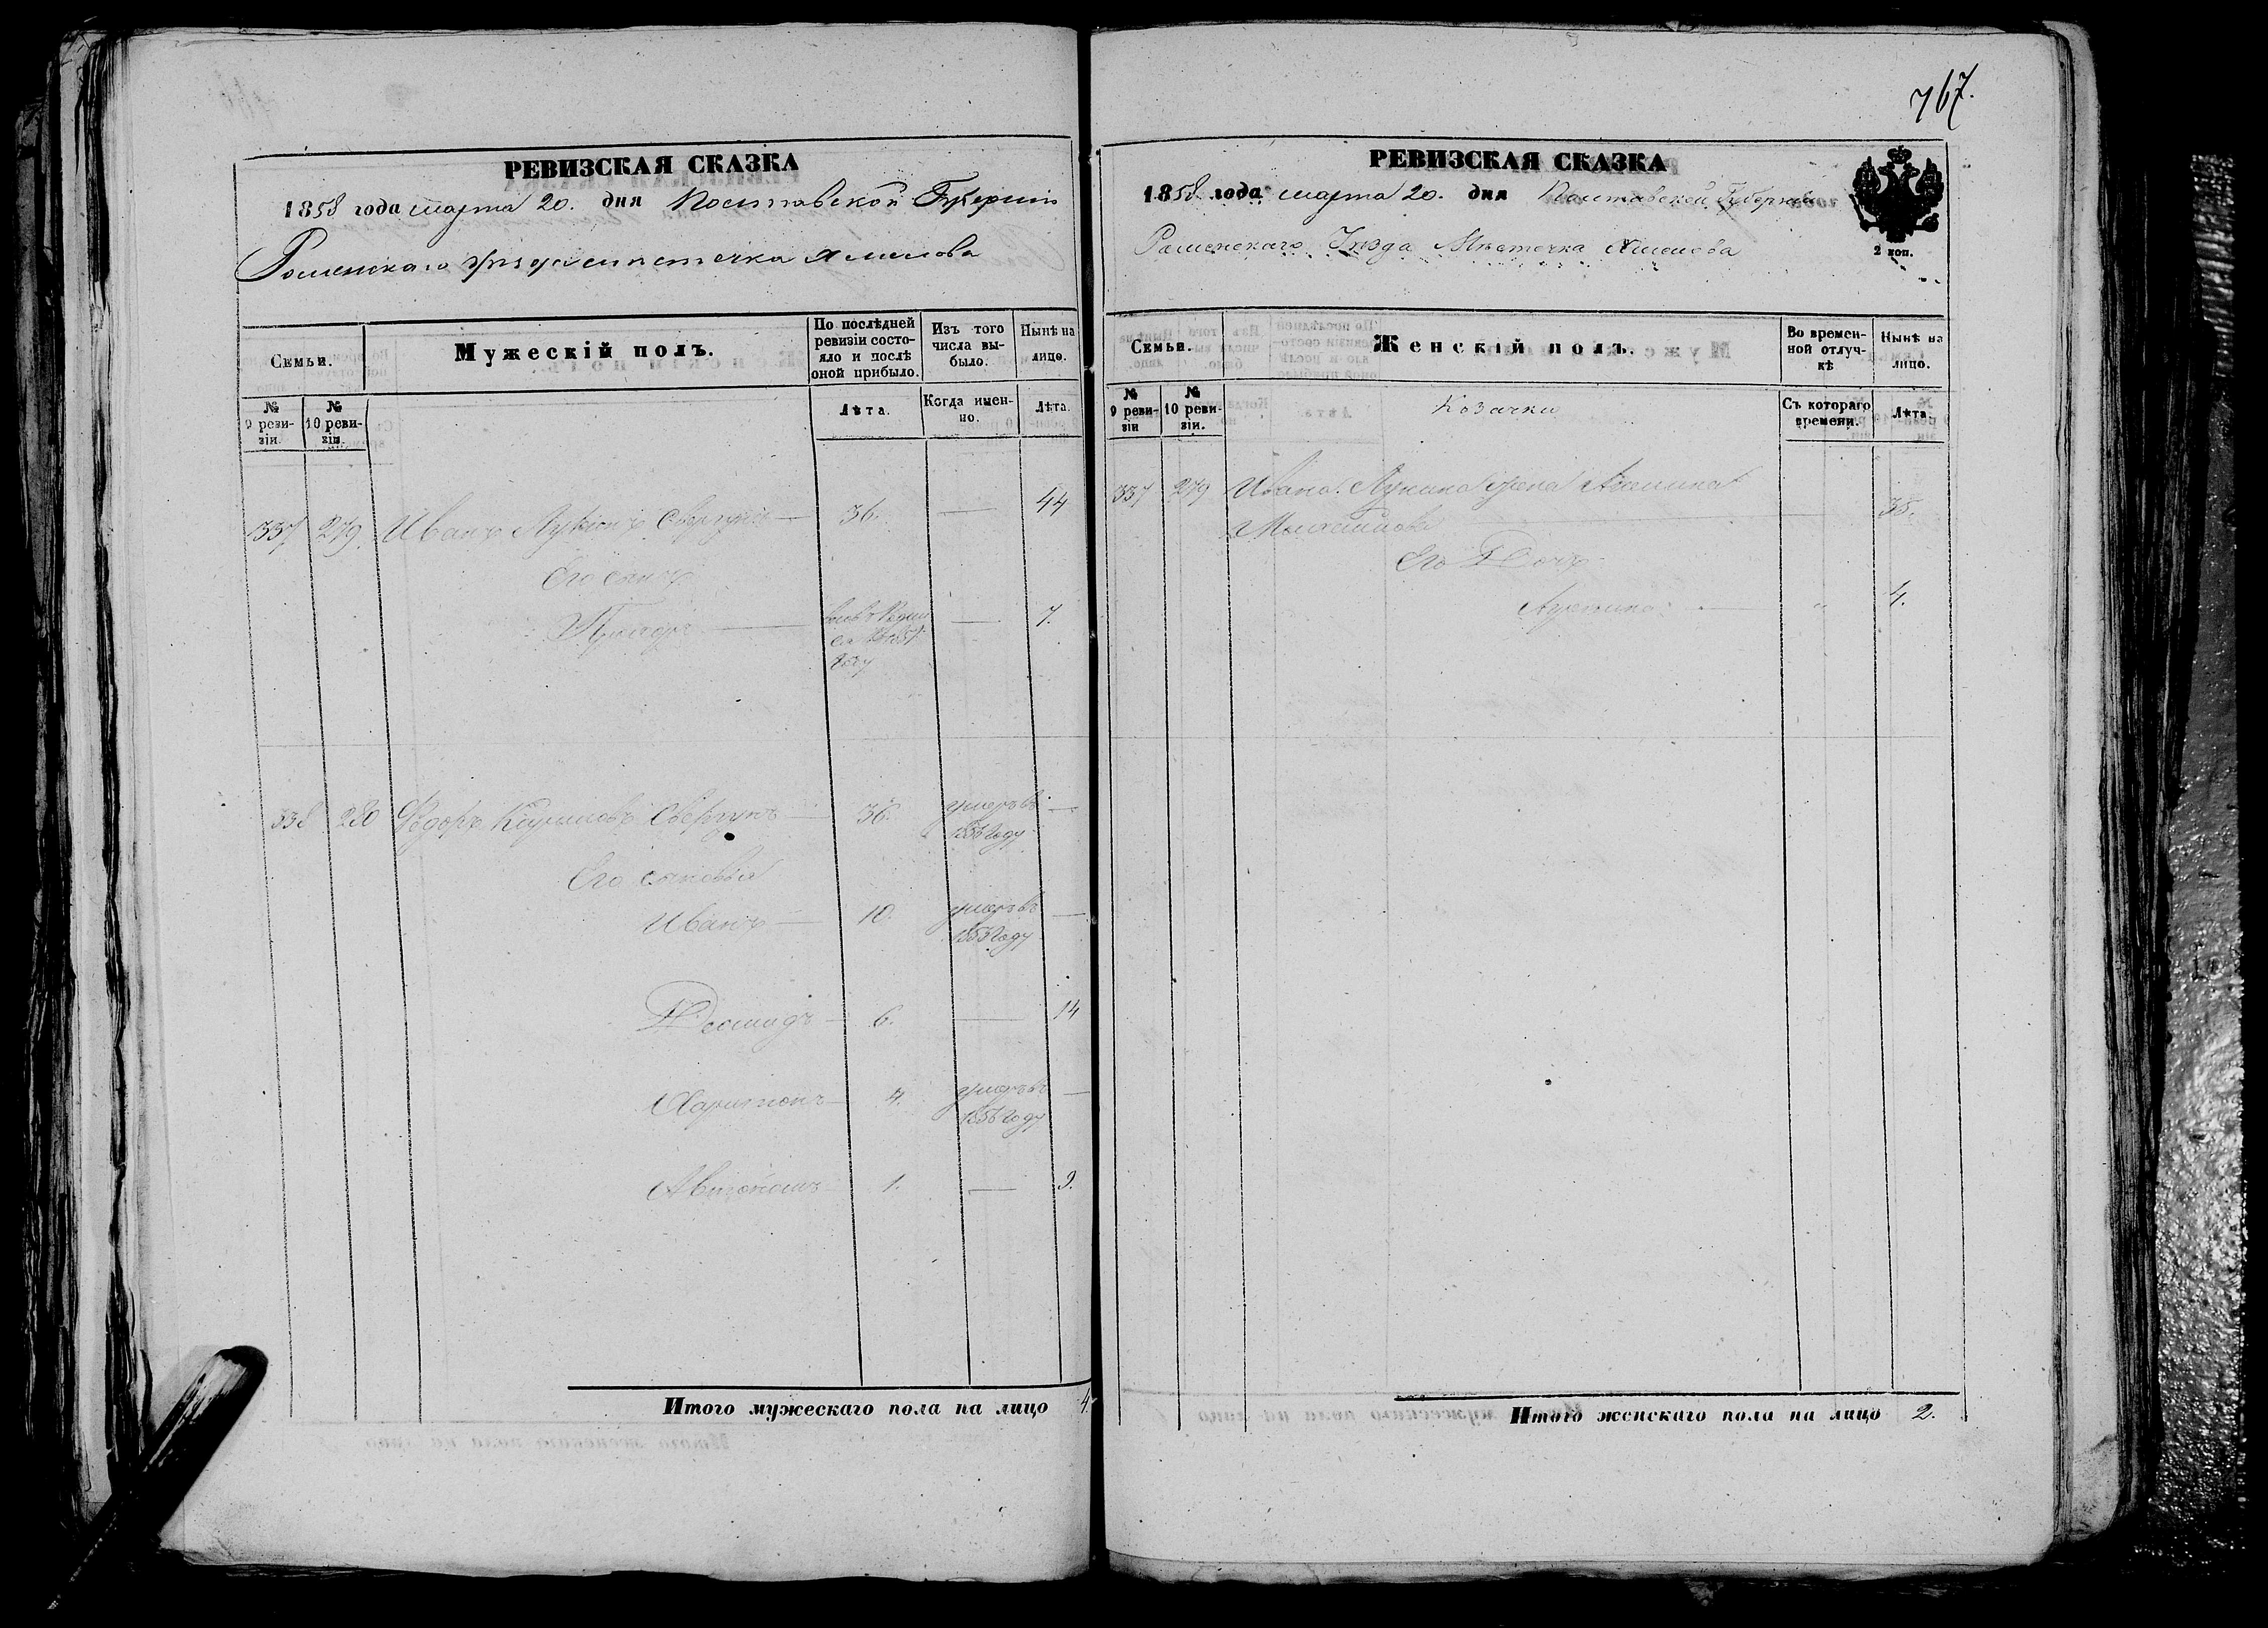 767.
РЕВИЗСКАЯ СКАЗКА
1858 года марта 20. дня Полтавской Губерніи
Роменскаго уѣзда мѣстечка
Семьи.
Мужескій полъ.
По послѣдней ревизіи состояло и послѣ оной прибыло.
Изъ того числа выбыло.
Нынѣ на лицо.
№ 9 ревизіи.
№ 10 ревизіи.
Лѣта.
Когда именно.
Лѣта.
337 279 Иванъ Лукинъ Свергунъ — 36. — 44
Его сынъ
7.
338 280 Федоръ Кириловъ Свергунъ — 36. умеръ въ —
1856 году
Его сыновья
Иванъ — 10. умеръ въ —
1853 году
6. — 14
Харитонъ — 4. умеръ въ —
1856 году
Автономъ 1. — 9.
Итого мужескаго пола на лицо 4.
РЕВИЗСКАЯ СКАЗКА
1858 года марта 20. дня Полтавской Губерніи
Роменскаго Уѣзда Мѣстечка
2 коп.
Семьи.
Женскій полъ.
Во временной отлучкѣ
Нынѣ на лицо.
№ 9 ревизіи
№ 10 ревизіи.
Козачки
Съ котораго времени.
Лѣта.
337 279 Ивана Лукина жена
35.
Его Дочь
4.
Итого женскаго пола на лицо 2.